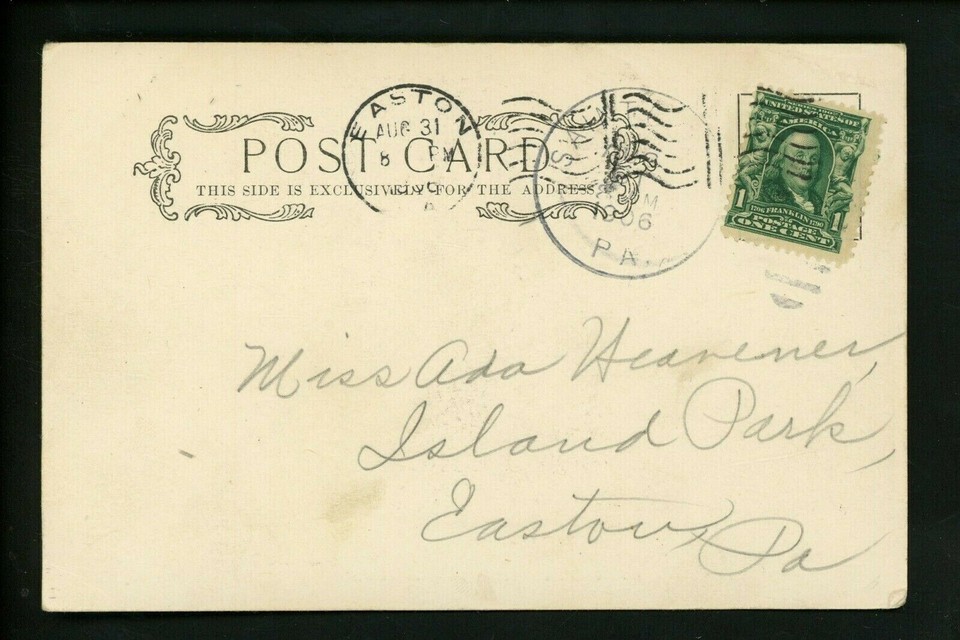 EASTON
AUG 31
8 PM
POST CARD
THIS SIDE IS EXCLUSIVELY FOR THE ADDRESS
M
06
PA.
UNITED STATES OF
AMERICA
1 1706 FRANKLIN 1790 1
POSTAGE
ONE CENT
Miss Ada Heavener,
Island Park,
Easton, Pa